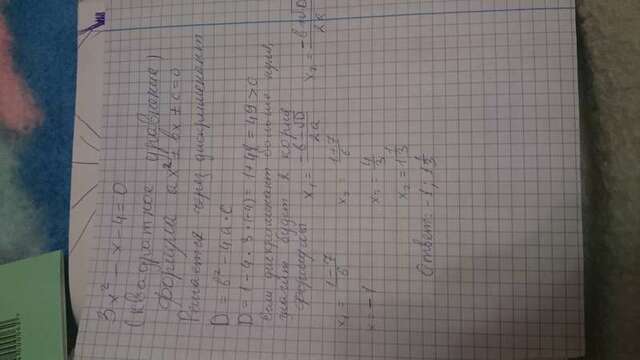 3x² - x - 4 = 0
(квадратное уравнение)
формула ax² ± bx ± c = 0
Решается через дискриминант
D = b² - 4·a·c
D = 1 - 4 · 3 · (-4) = 1 + 48 = 49 > 0
Если дискриминант больше нуля,
значит будет 2 корня
формулы x₁ = (-b - √D)/2a x₂ = (-b + √D)/2a
x₁ = (1 - 7)/6 x₂ = (1 + 7)/6
x = -1 x₂ = 4/3
x₂ = 1 1/3
Ответ: -1; 1 1/3